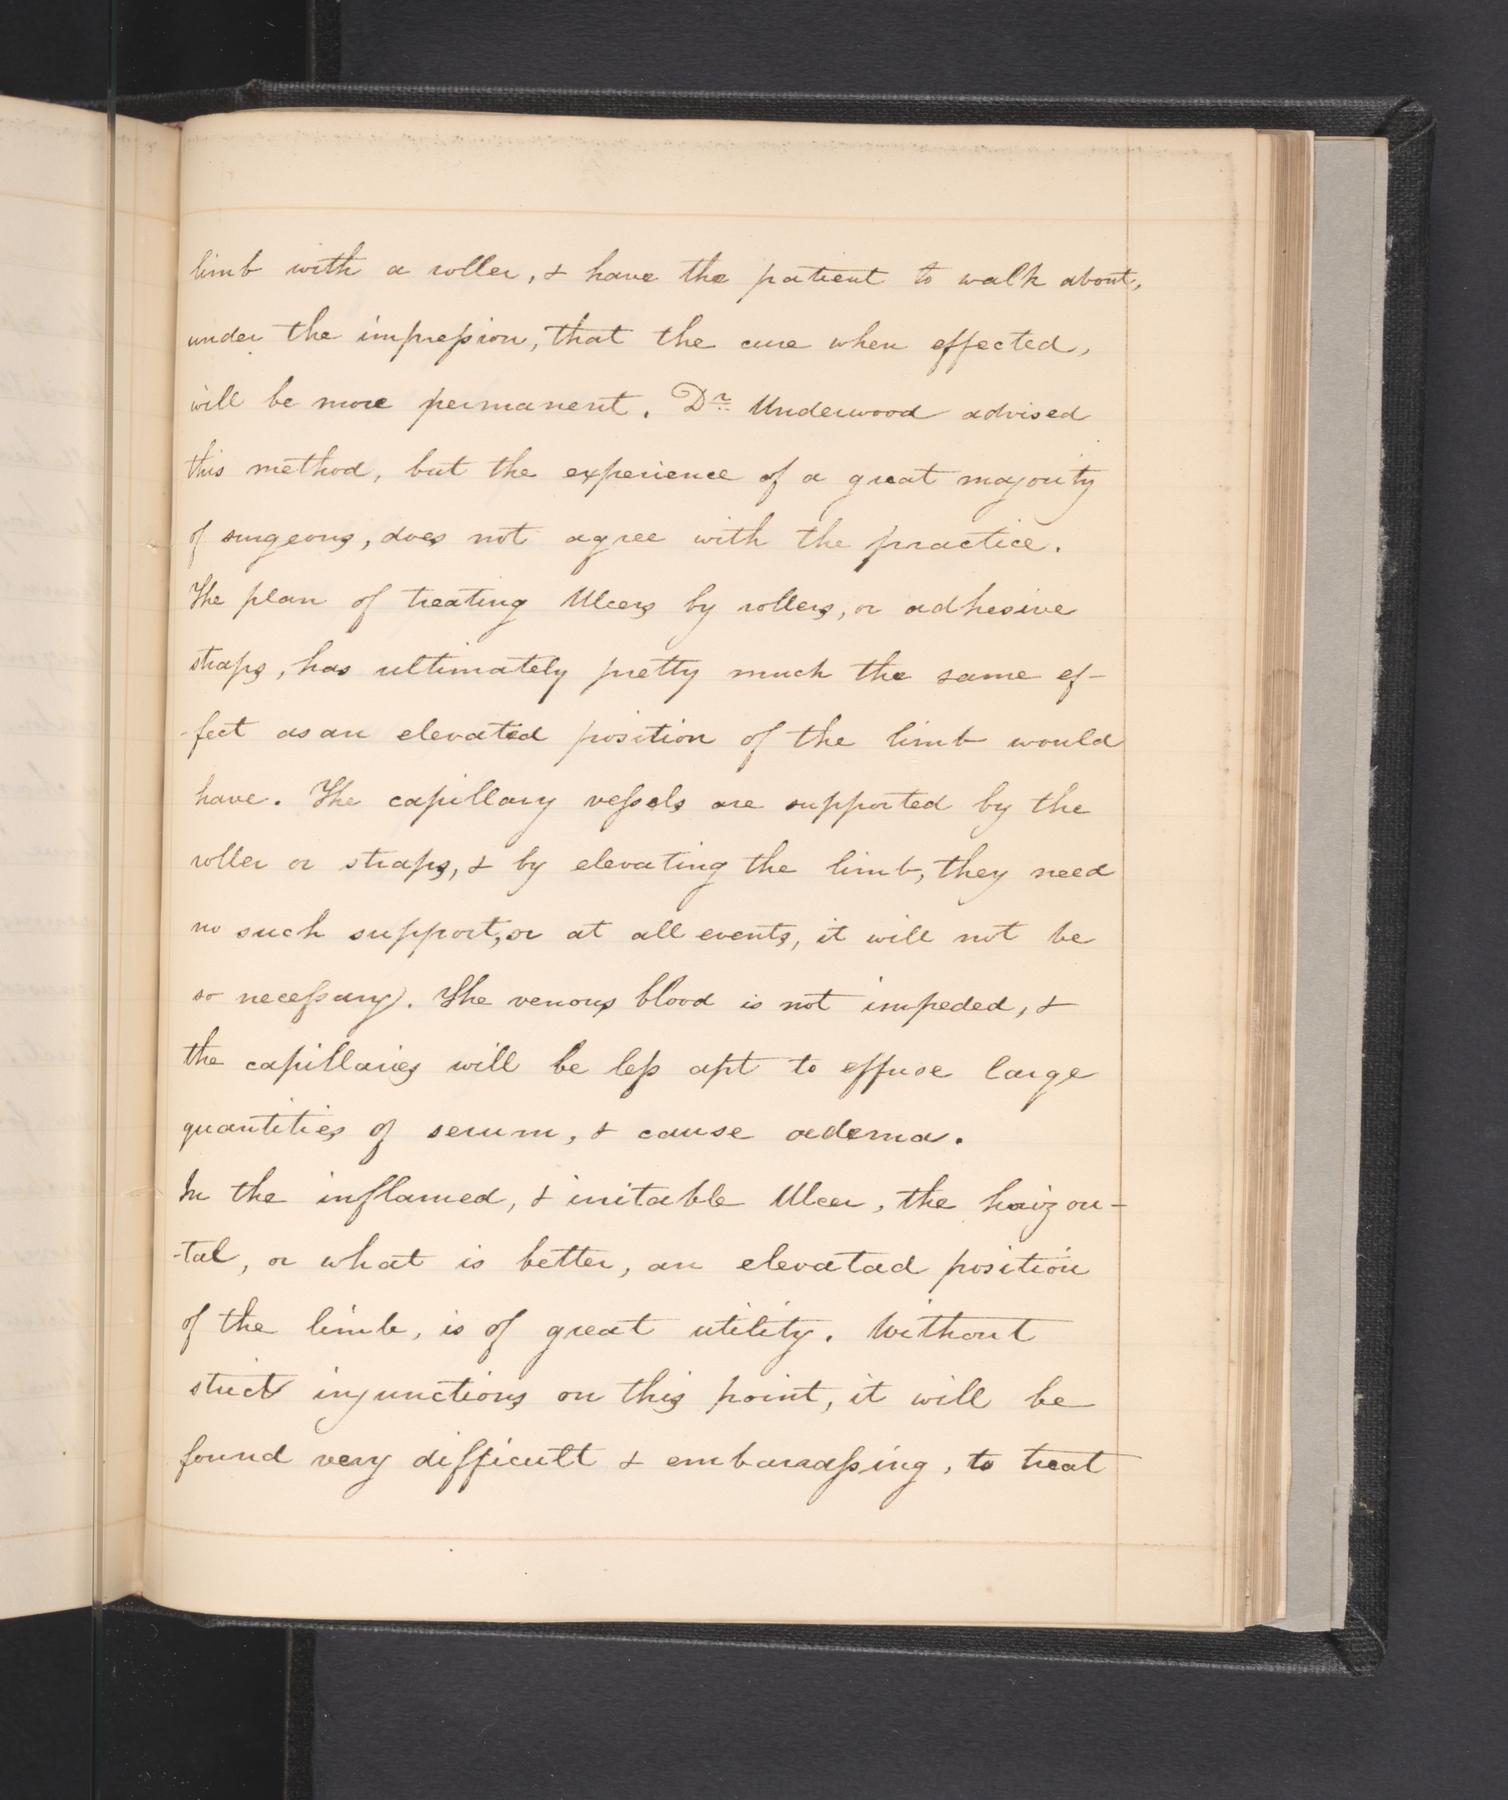 limb with a roller, & have the patient to walk about,
under the impression, that the cure when effected,
will be more permanent. Dr. Underwood advised
this method, but the experience of a great majority
of surgeons, does not agree with the practice.
The plan of treating Ulcers by rollers, or adhesive
straps, has ultimately pretty much the same ef-
-fect as an elevated position of the limb would
have. The capillary vessels are supported by the
roller or straps, & by elevating the limb, they need
no such support, or at all events, it will not be
so necessary. The venous blood is not impeded, &
the capillaries will be less apt to effuse large
quantities of serum, & cause oedema.
In the inflamed, & irritable Ulcer, the horizon-
-tal, or what is better, an elevatad position
of the limb, is of great utility. Without
strict injunctions on this point, it will be
found very difficult & embarrassing, to treat